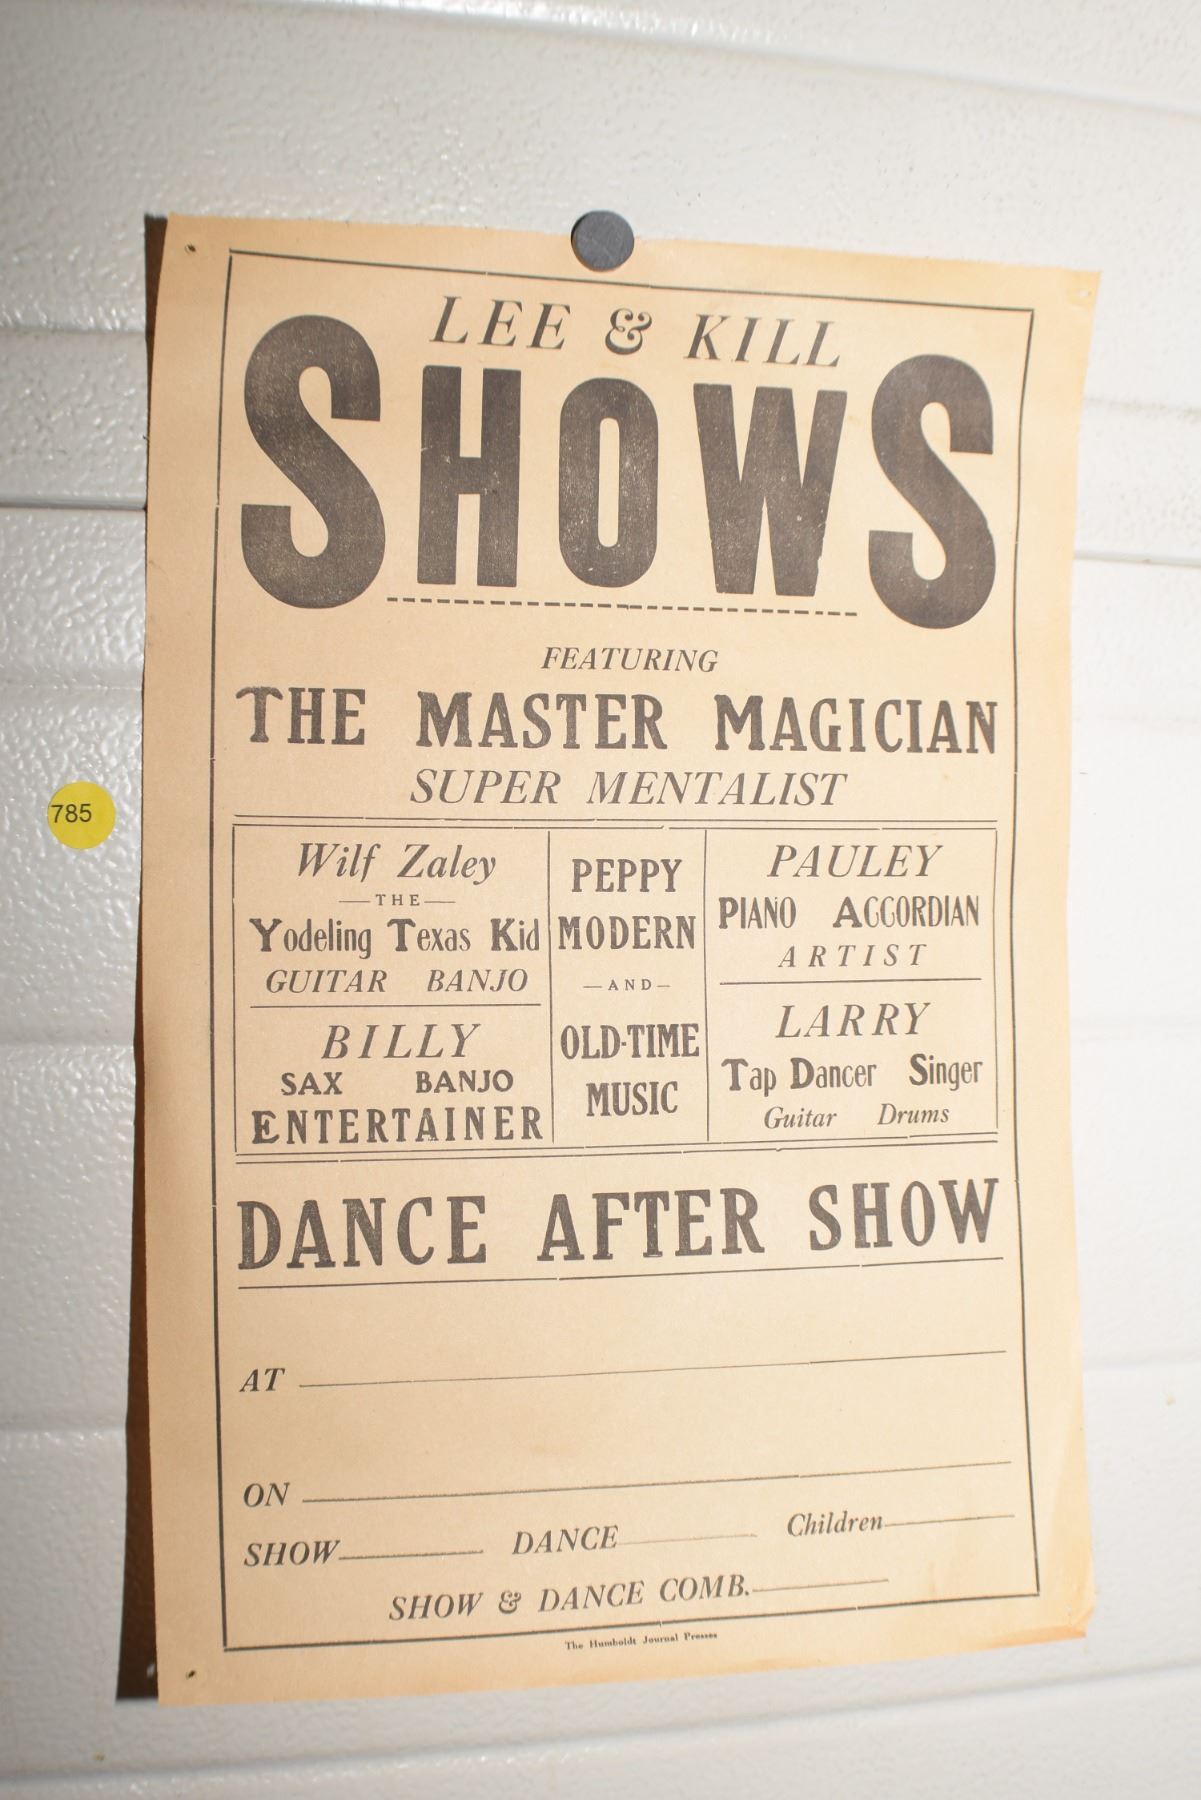 LEE & KILL
SHOWS
FEATURING
THE MASTER MAGICIAN
SUPER MENTALIST
Wilf Zaley
—THE—
Yodeling Texas Kid
GUITAR BANJO
BILLY
SAX BANJO
ENTERTAINER
PEPPY
MODERN
—AND—
OLD-TIME
MUSIC
PAULEY
PIANO ACCORDIAN
ARTIST
LARRY
Tap Dancer Singer
Guitar Drums
DANCE AFTER SHOW
AT
ON
SHOW DANCE Children
SHOW & DANCE COMB.
The Humboldt Journal Presses
785